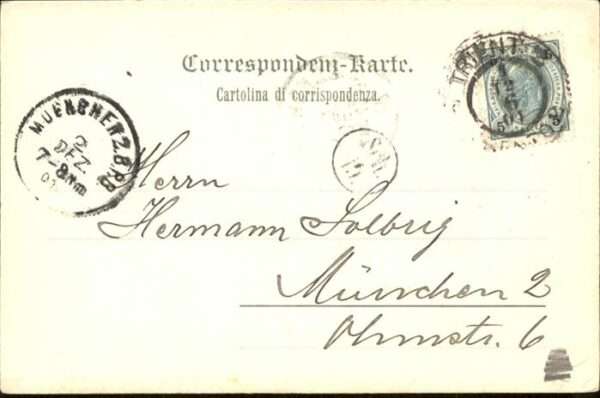 Correspondenz-Karte.
Cartolina di corrispondenza.
TRIENT
MUENCHEN 2. B.P.
2
DEZ.
7-8 Nm
Herrn
Hermann Solbrig
München 2
Ohmstr. 6